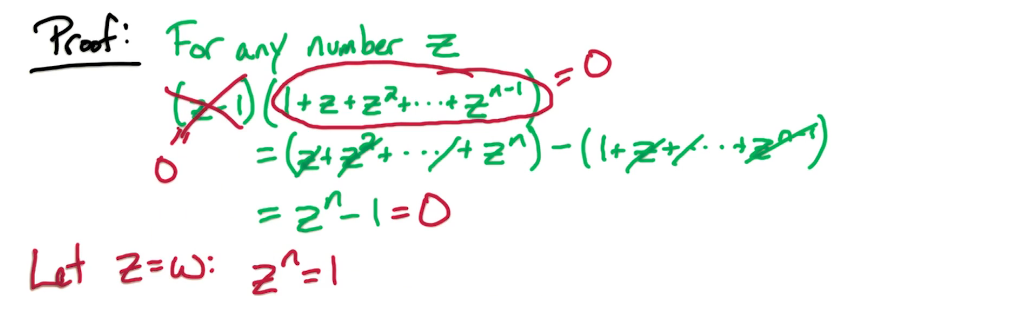 Proof: For any number z
(z-1)(1+z+z²+⋯+zⁿ⁻¹) = 0
= 0
= (z+z²+⋯+zⁿ) - (1+z+⋯+zⁿ⁻¹)
= zⁿ-1 = 0
Let z=ω: zⁿ=1